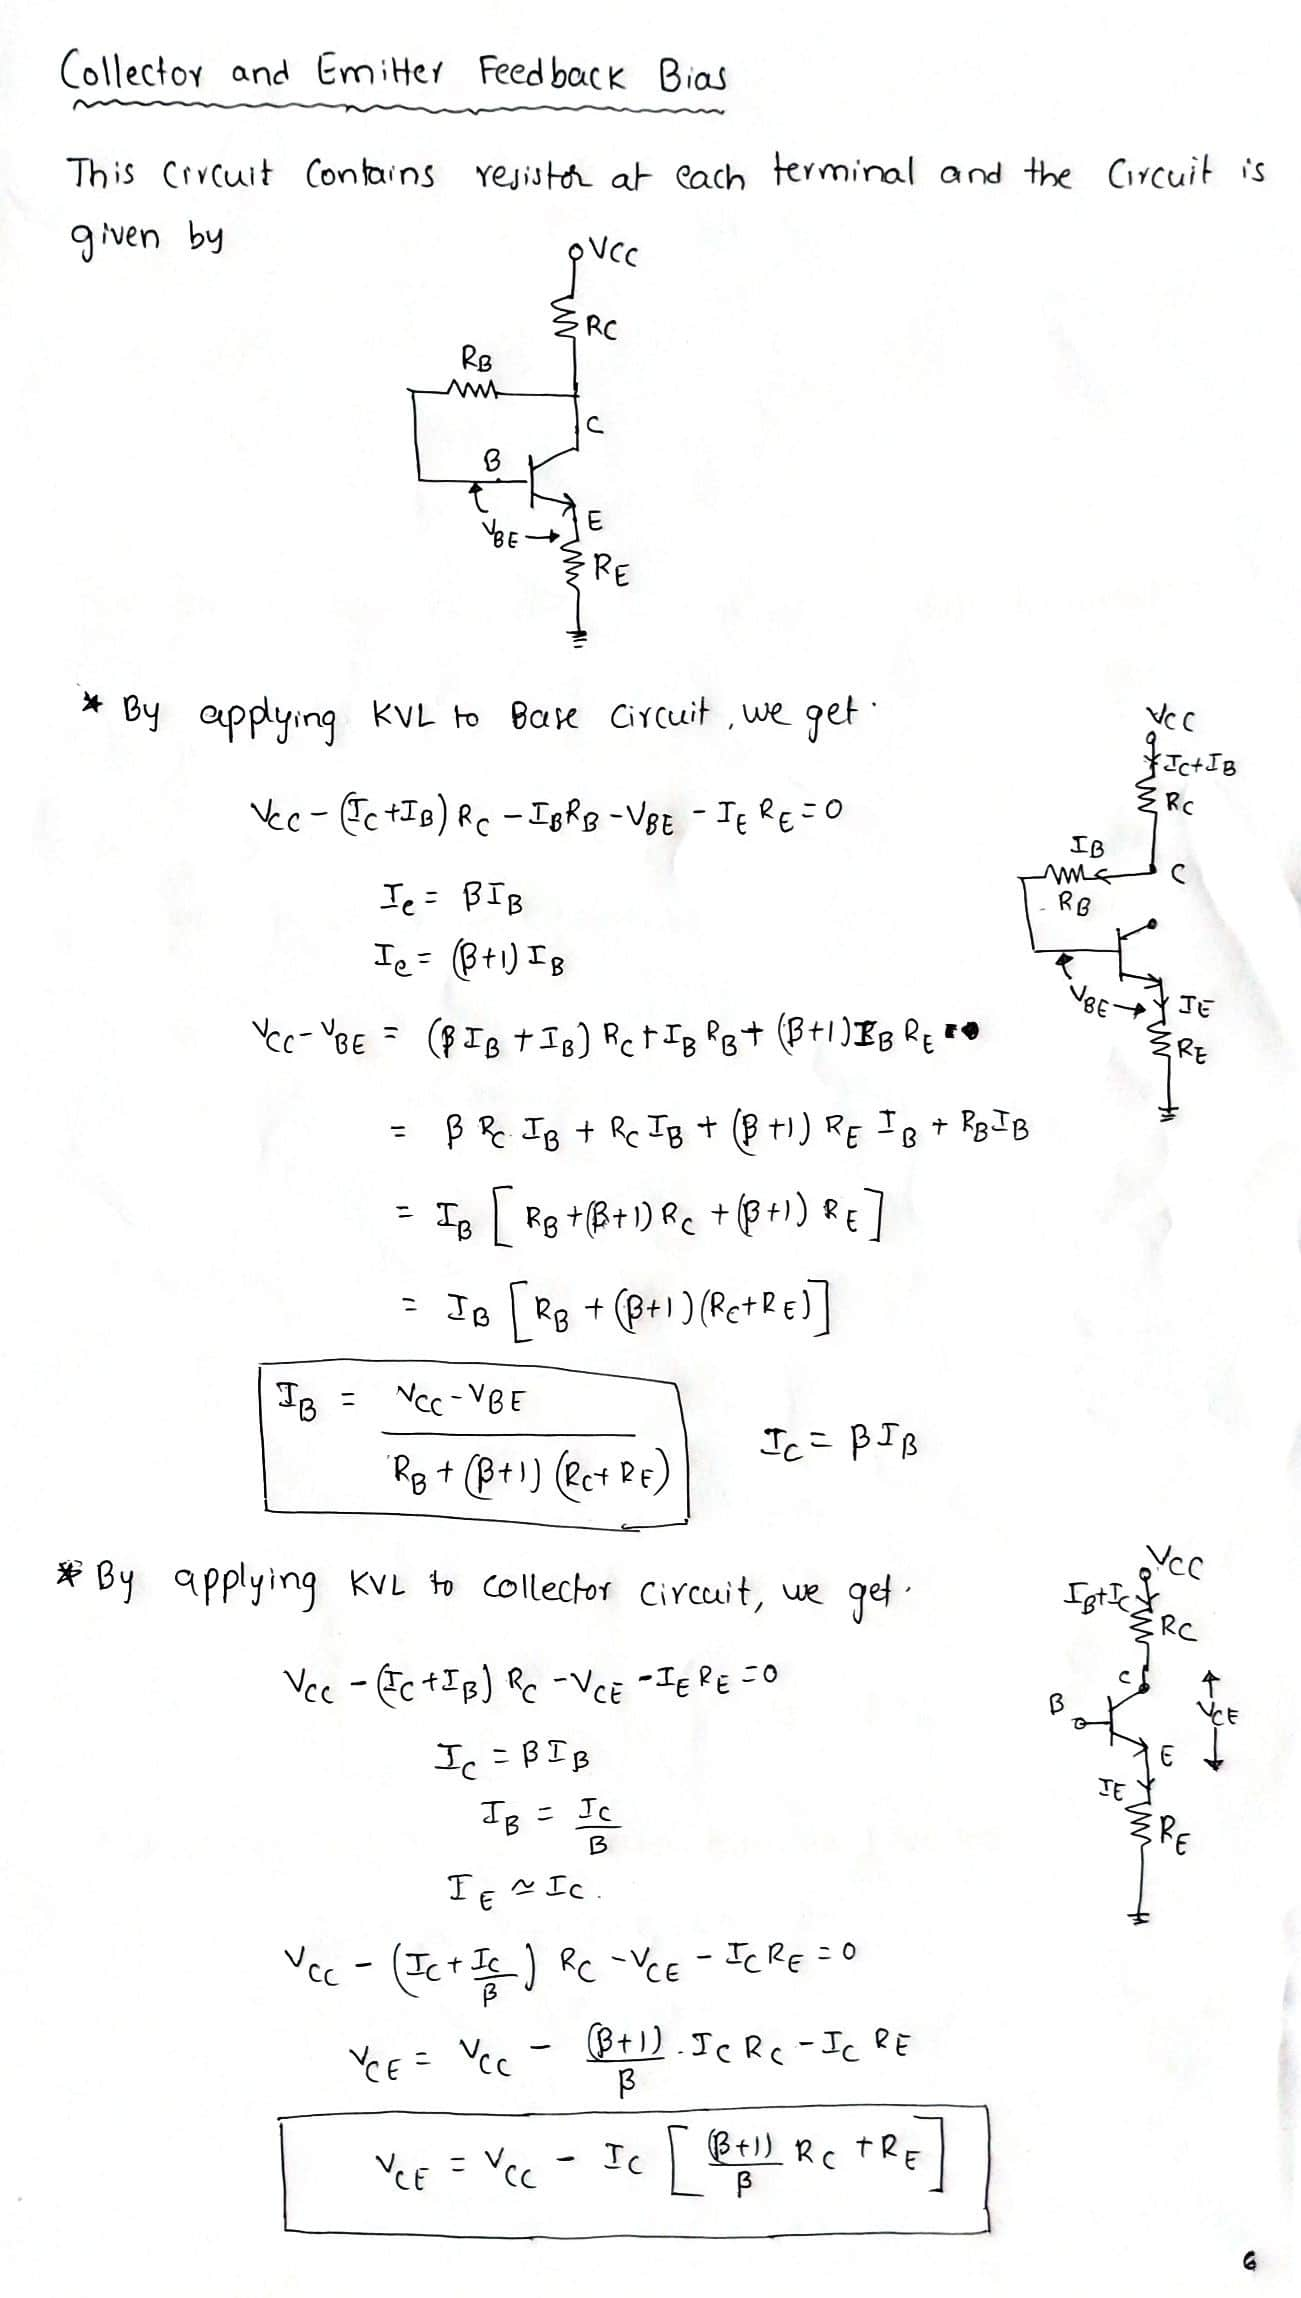 Collector and Emitter Feedback Bias
This Circuit Contains resistor at each terminal and the Circuit is
given by
VCC
RC
RB
C
B
VBE
E
RE
* By applying KVL to Base Circuit, we get.
VCC - (IC + IB) RC - IBRB - VBE - IE RE = 0
Ie = βIB
Ie = (β+1) IB
VCC - VBE = (β IB + IB) RC + IB RB + (β+1) IB RE
= β RC IB + RC IB + (β+1) RE IB + RBIB
= IB [ RB + (β+1) RC + (β+1) RE ]
= IB [ RB + (β+1) (RC+RE) ]
IB = VCC - VBE / RB + (β+1) (RC+ RE)
IC = βIB
VCC
IC+IB
RC
IB
C
RB
VBE
IE
RE
* By applying KVL to collector circuit, we get.
VCC - (IC + IB) RC - VCE - IE RE = 0
IC = βIB
IB = IC / β
IE ≃ IC.
VCC - (IC + IC/β) RC - VCE - IC RE = 0
VCE = VCC - (β+1)/β . IC RC - IC RE
VCE = VCC - IC [ (β+1)/β RC + RE ]
VCC
IB+IC
RC
C
B
VCE
E
IE
RE
6